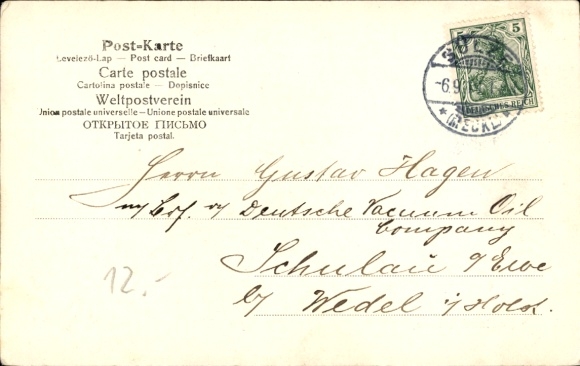 Post-Karte
Levelező-Lap — Post card — Briefkaart
Carte postale
Cartolina postale — Dopisnice
Weltpostverein
Union postale universelle — Unione postale universale
ОТКРЫТОЕ ПИСЬМО
Tarjeta postal.
5 5
DEUTSCHES REICH
-6.9.
(MECKL.)
Herrn Gustav Hagen
Deutsche Vacuum Oil
Company
Schulau a/Elbe
b/ Wedel i/Holst.
12.-